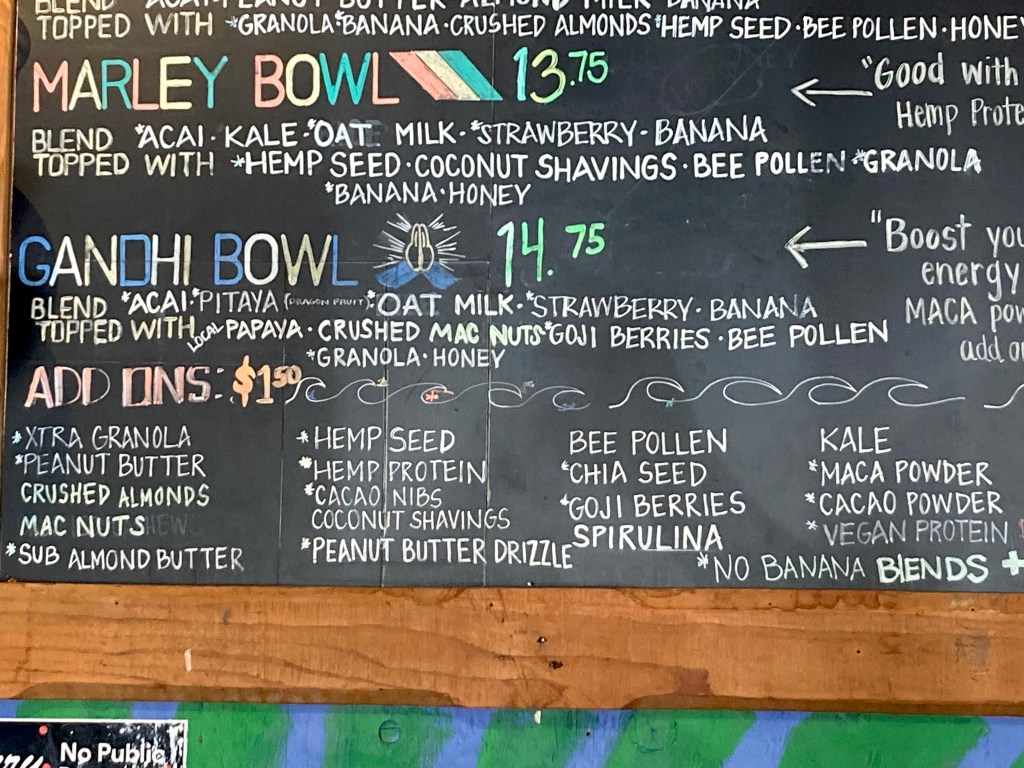 BLEND ACAI·PEANUT BUTTER ALMOND MILK BANANA
TOPPED WITH *GRANOLA*BANANA·CRUSHED ALMONDS*HEMP SEED·BEE POLLEN·HONEY
MARLEY BOWL 13.75
"Good with
Hemp Prote
BLEND *ACAI·KALE·*OAT MILK·*STRAWBERRY·BANANA
TOPPED WITH *HEMP SEED·COCONUT SHAVINGS·BEE POLLEN*GRANOLA
*BANANA·HONEY
GANDHI BOWL 14.75
"Boost you
energy
MACA pow
add o
BLEND *ACAI·*PITAYA (DRAGON FRUIT)·*OAT MILK·*STRAWBERRY·BANANA
TOPPED WITH LOCAL PAPAYA·CRUSHED MAC NUTS*GOJI BERRIES·BEE POLLEN
*GRANOLA·HONEY
ADD ONS: $1.50
*XTRA GRANOLA
*PEANUT BUTTER
CRUSHED ALMONDS
MAC NUTS
*SUB ALMOND BUTTER
*HEMP SEED
*HEMP PROTEIN
*CACAO NIBS
COCONUT SHAVINGS
*PEANUT BUTTER DRIZZLE
BEE POLLEN
*CHIA SEED
*GOJI BERRIES
SPIRULINA
KALE
*MACA POWDER
*CACAO POWDER
*VEGAN PROTEIN
*NO BANANA BLENDS +
No Public